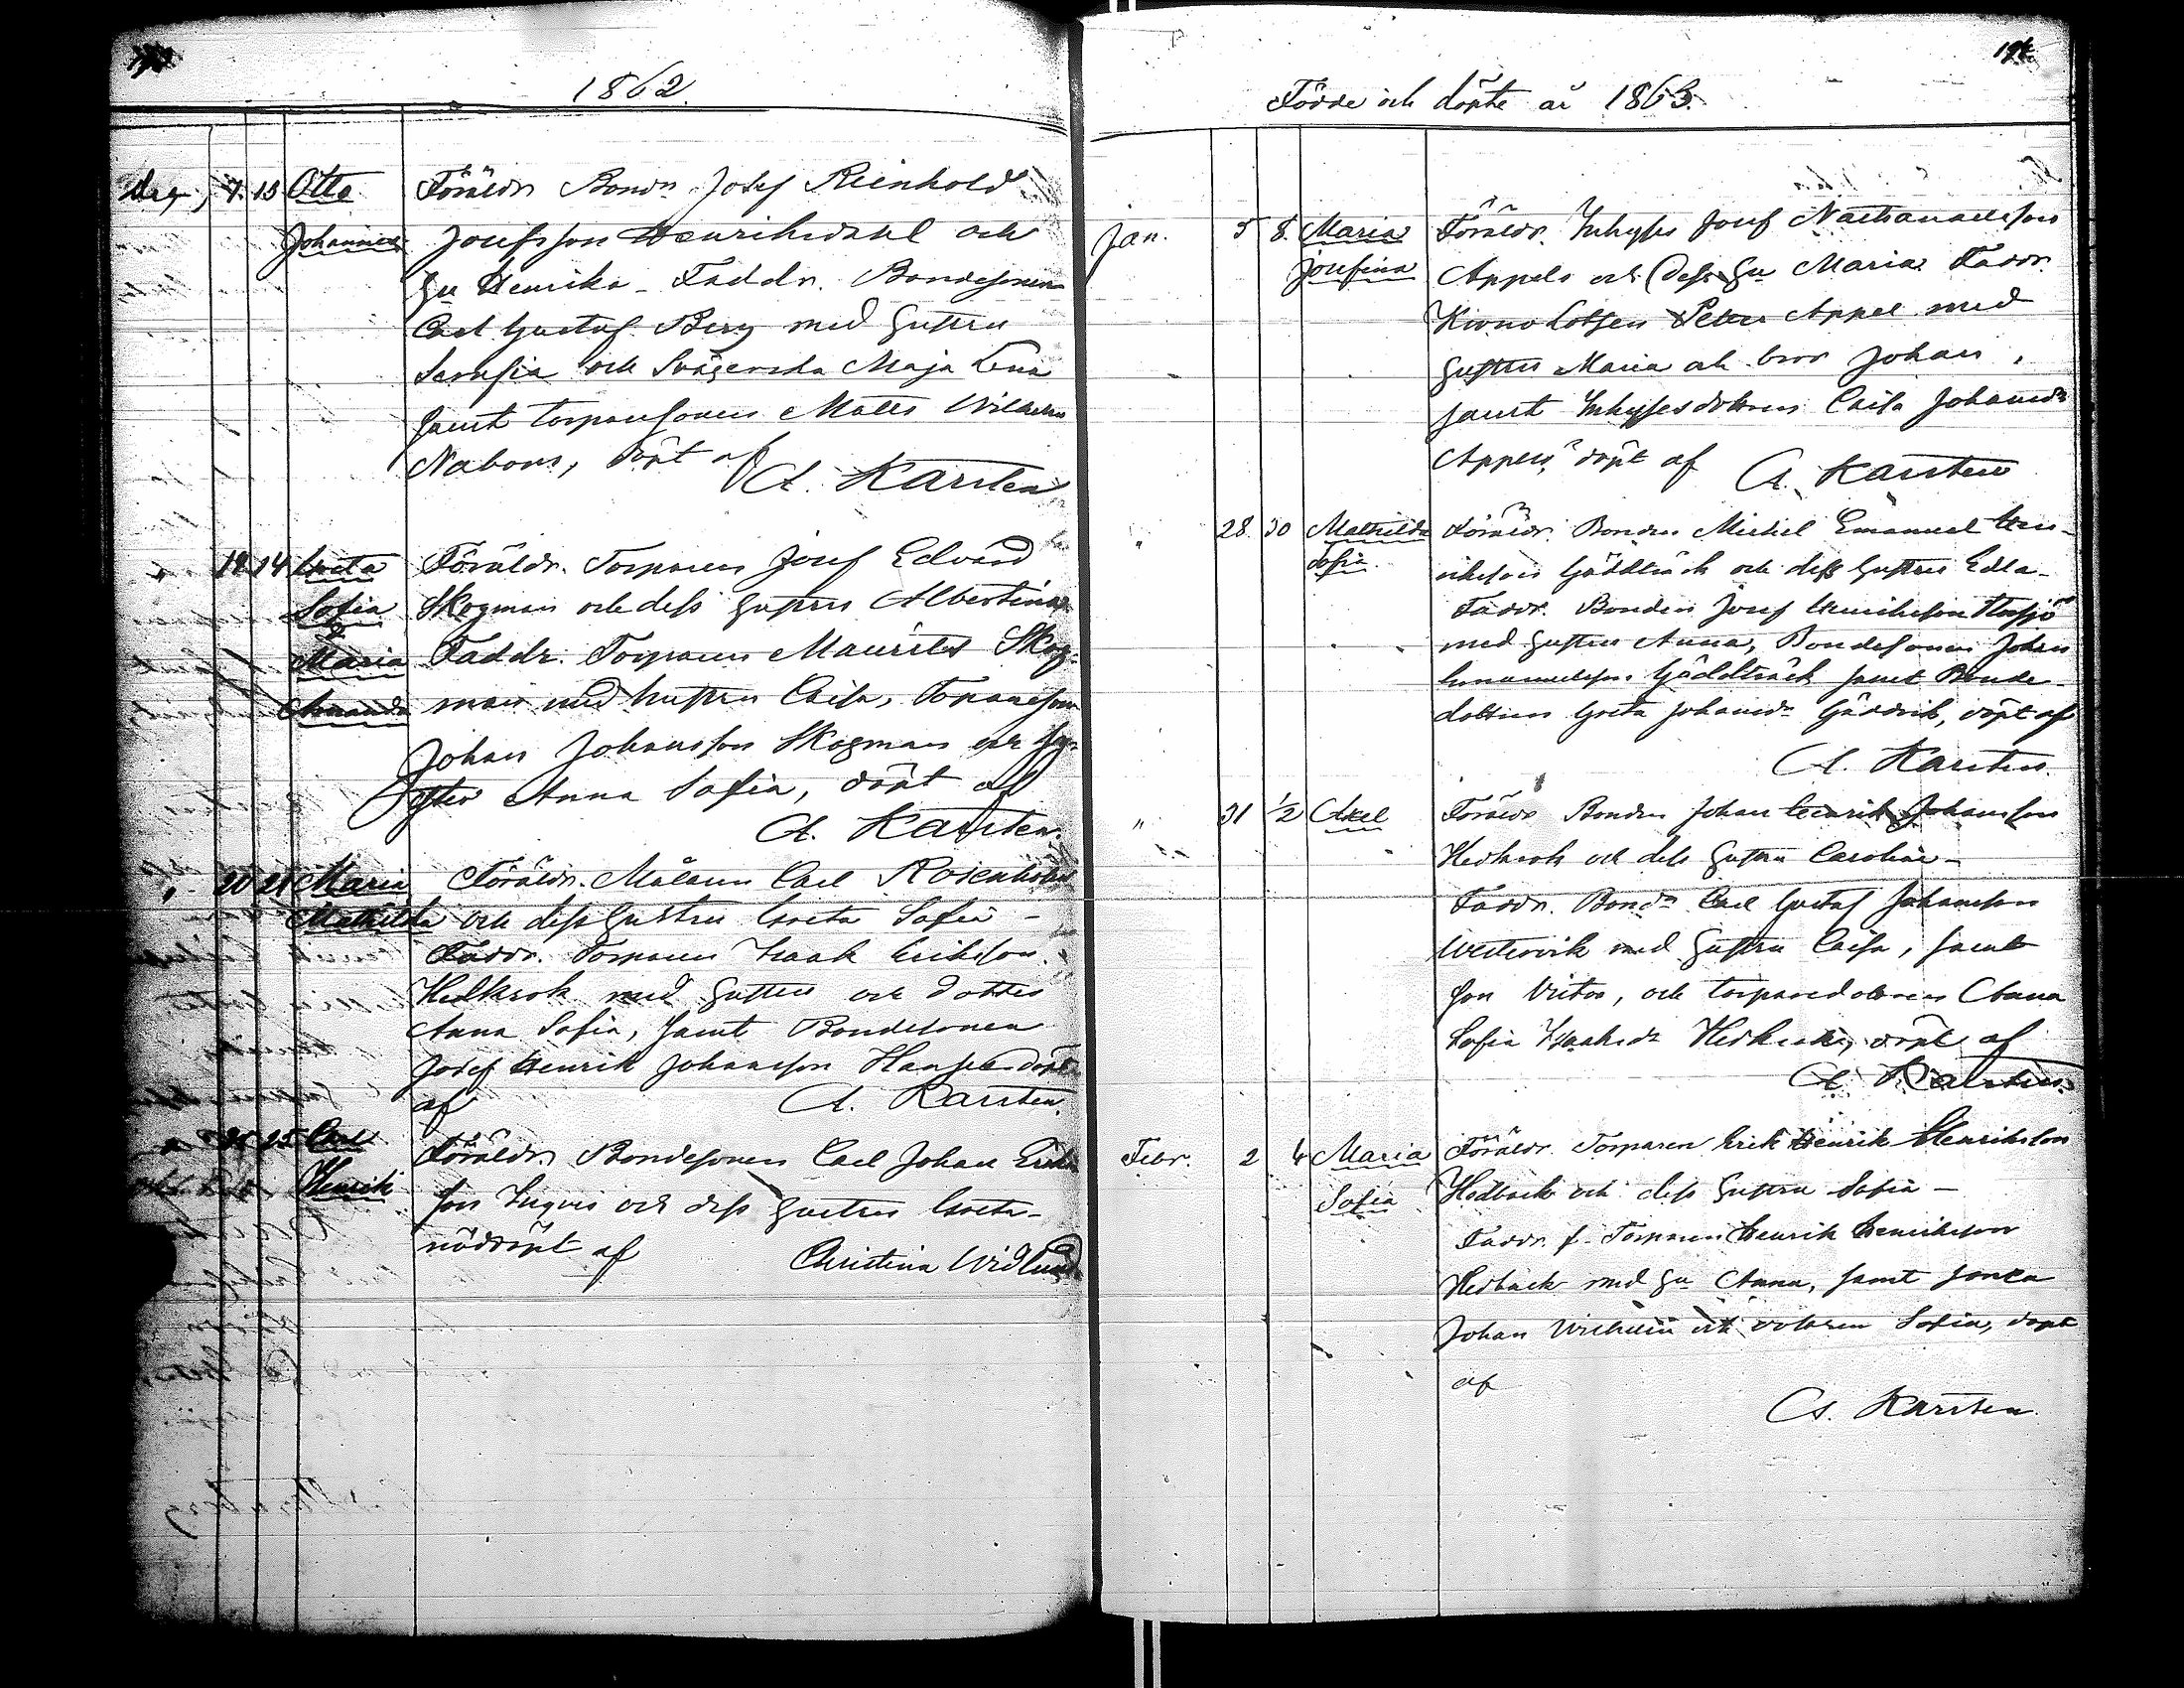 1862.
Dec. 7. 13 Otto Föräldr. Bondn Josef Reinhold
Johannes Josefsson Henriksdahl och
Hu Henrika - Faddr. Bondesonen
Carl Gustaf Berg med Hustru
Serafia och Svägerska Maja Lena
samt torparesonen Matts Wilhelm
Nabons, döpt af
A. Karsten
12 14 Greta Föräldr. Torparen Josef Edvard
Sofia Skogman och dess hustru Albertina
& Maria Faddr. Torparen Maurits Skog-
Amanda man med hustru Caisa, Torparesonen
Johan Johansson Skogman och
syster Anna Sofia, döpt af
A. Karsten.
20 21 Maria Föräldr. Målaren Carl Rosenholm
Mathilda och dess Hustru Greta Sofia -
Faddr. Torparen Isaak Eriksson
Hedkrok med hustru och dotter
Anna Sofia, samt Bondesonen
Josef Henrik Johansson döpt
af A. Karsten.
25 Carl Föräldr. Bondesonen Carl Johan Eriks
Henrik son Ingvis och dess hustru Greta -
nöddöpt af Christina Widlund
Födde och döpte år 1863.
Jan. 5 8. Maria Föräldr. Inhyses Josef Nathanaelsson
Josefina Appelö och dess Hu Maria. Faddr.
Kronolotsen Petter Appel med
hustru Maria och bror Johan,
samt Inhysesdottren Caisa Johansdr
Appelö, döpt af A. Karsten
" 28. 30 Mathilda Föräldr. Bonden Michel Emanuel Hen-
Sofia. riksson Gäddträsk och dess hustru Edla -
Faddr. Bonden Josef Henriksson
med hustru Anna, Bondesonen Johan
Emanuelsson Gäddträsk samt Bonde-
dottren Greta Johansdr döpt af
A. Karsten.
" 31 1/2 Axel Föräldr Bonden Johan Henrik Johansson
Hedkrok och dess hustru Carolina -
Faddr. Bondn Carl Gustaf Johansson
Westervik med hustru Caisa, samt
son Victor, och torparedottren Anna
Sofia Isaksdr Hedkrok, döpt af
A. Karsten.
Febr. 2 4 Maria Föräldr. Torparen Erik Henrik Henriksson
Sofia Hedback och dess hustru Sofia -
Faddr. f. Torparen Henrik Henriksson
Hedback med Hu Anna, samt sonen
Johan Wilhelm och dottren Sofia, döpt
af
A. Karsten.